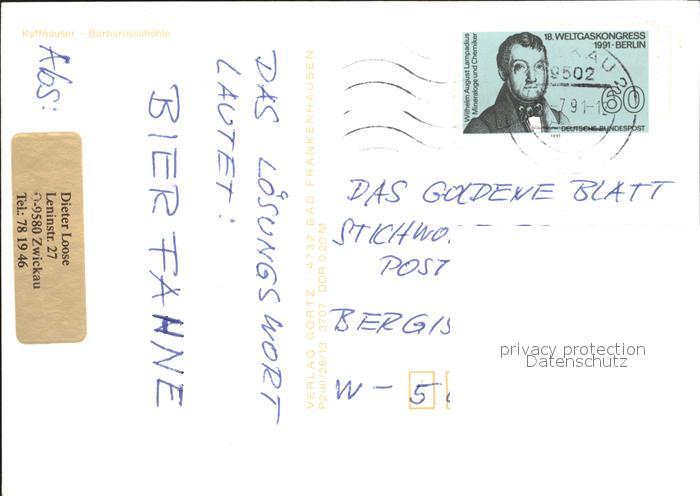 Kyffhäuser - Barbarossahöhle
Abs:
Dieter Loose
Leninstr. 27
O-9580 Zwickau
Tel.: 78 19 46
DAS LÖSUNGSWORT
LAUTET:
BIERTANNE
VERLAG GÖRTZ · 4732 BAD FRANKENHAUSEN
P2-III/26/13 3707 DDR 0,20 M
Wilhelm August Lampadius
Mineraloge und Chemiker
18. WELTGASKONGRESS
1991 · BERLIN
60
DEUTSCHE BUNDESPOST
1991
9502
-7.91-1
DAS GOLDENE BLATT
STICHWO
POST
BERGIS
W - 5
privacy protection
Datenschutz